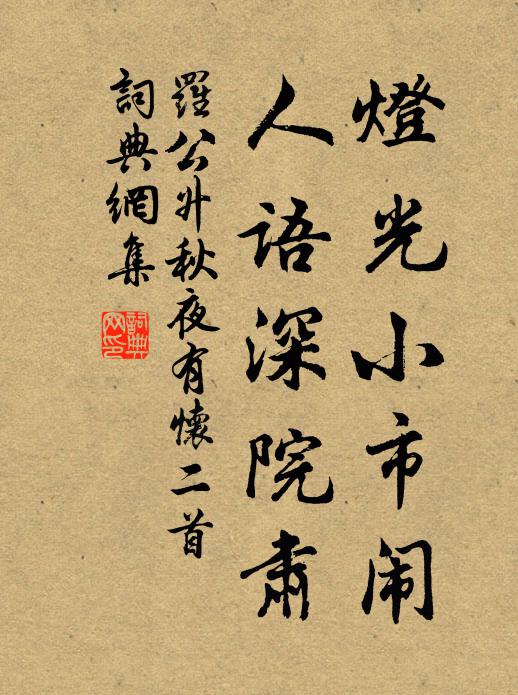 燈光小市闹
人語深院肅
羅公升秋夜有懷二首
詞典網集
詞典網印